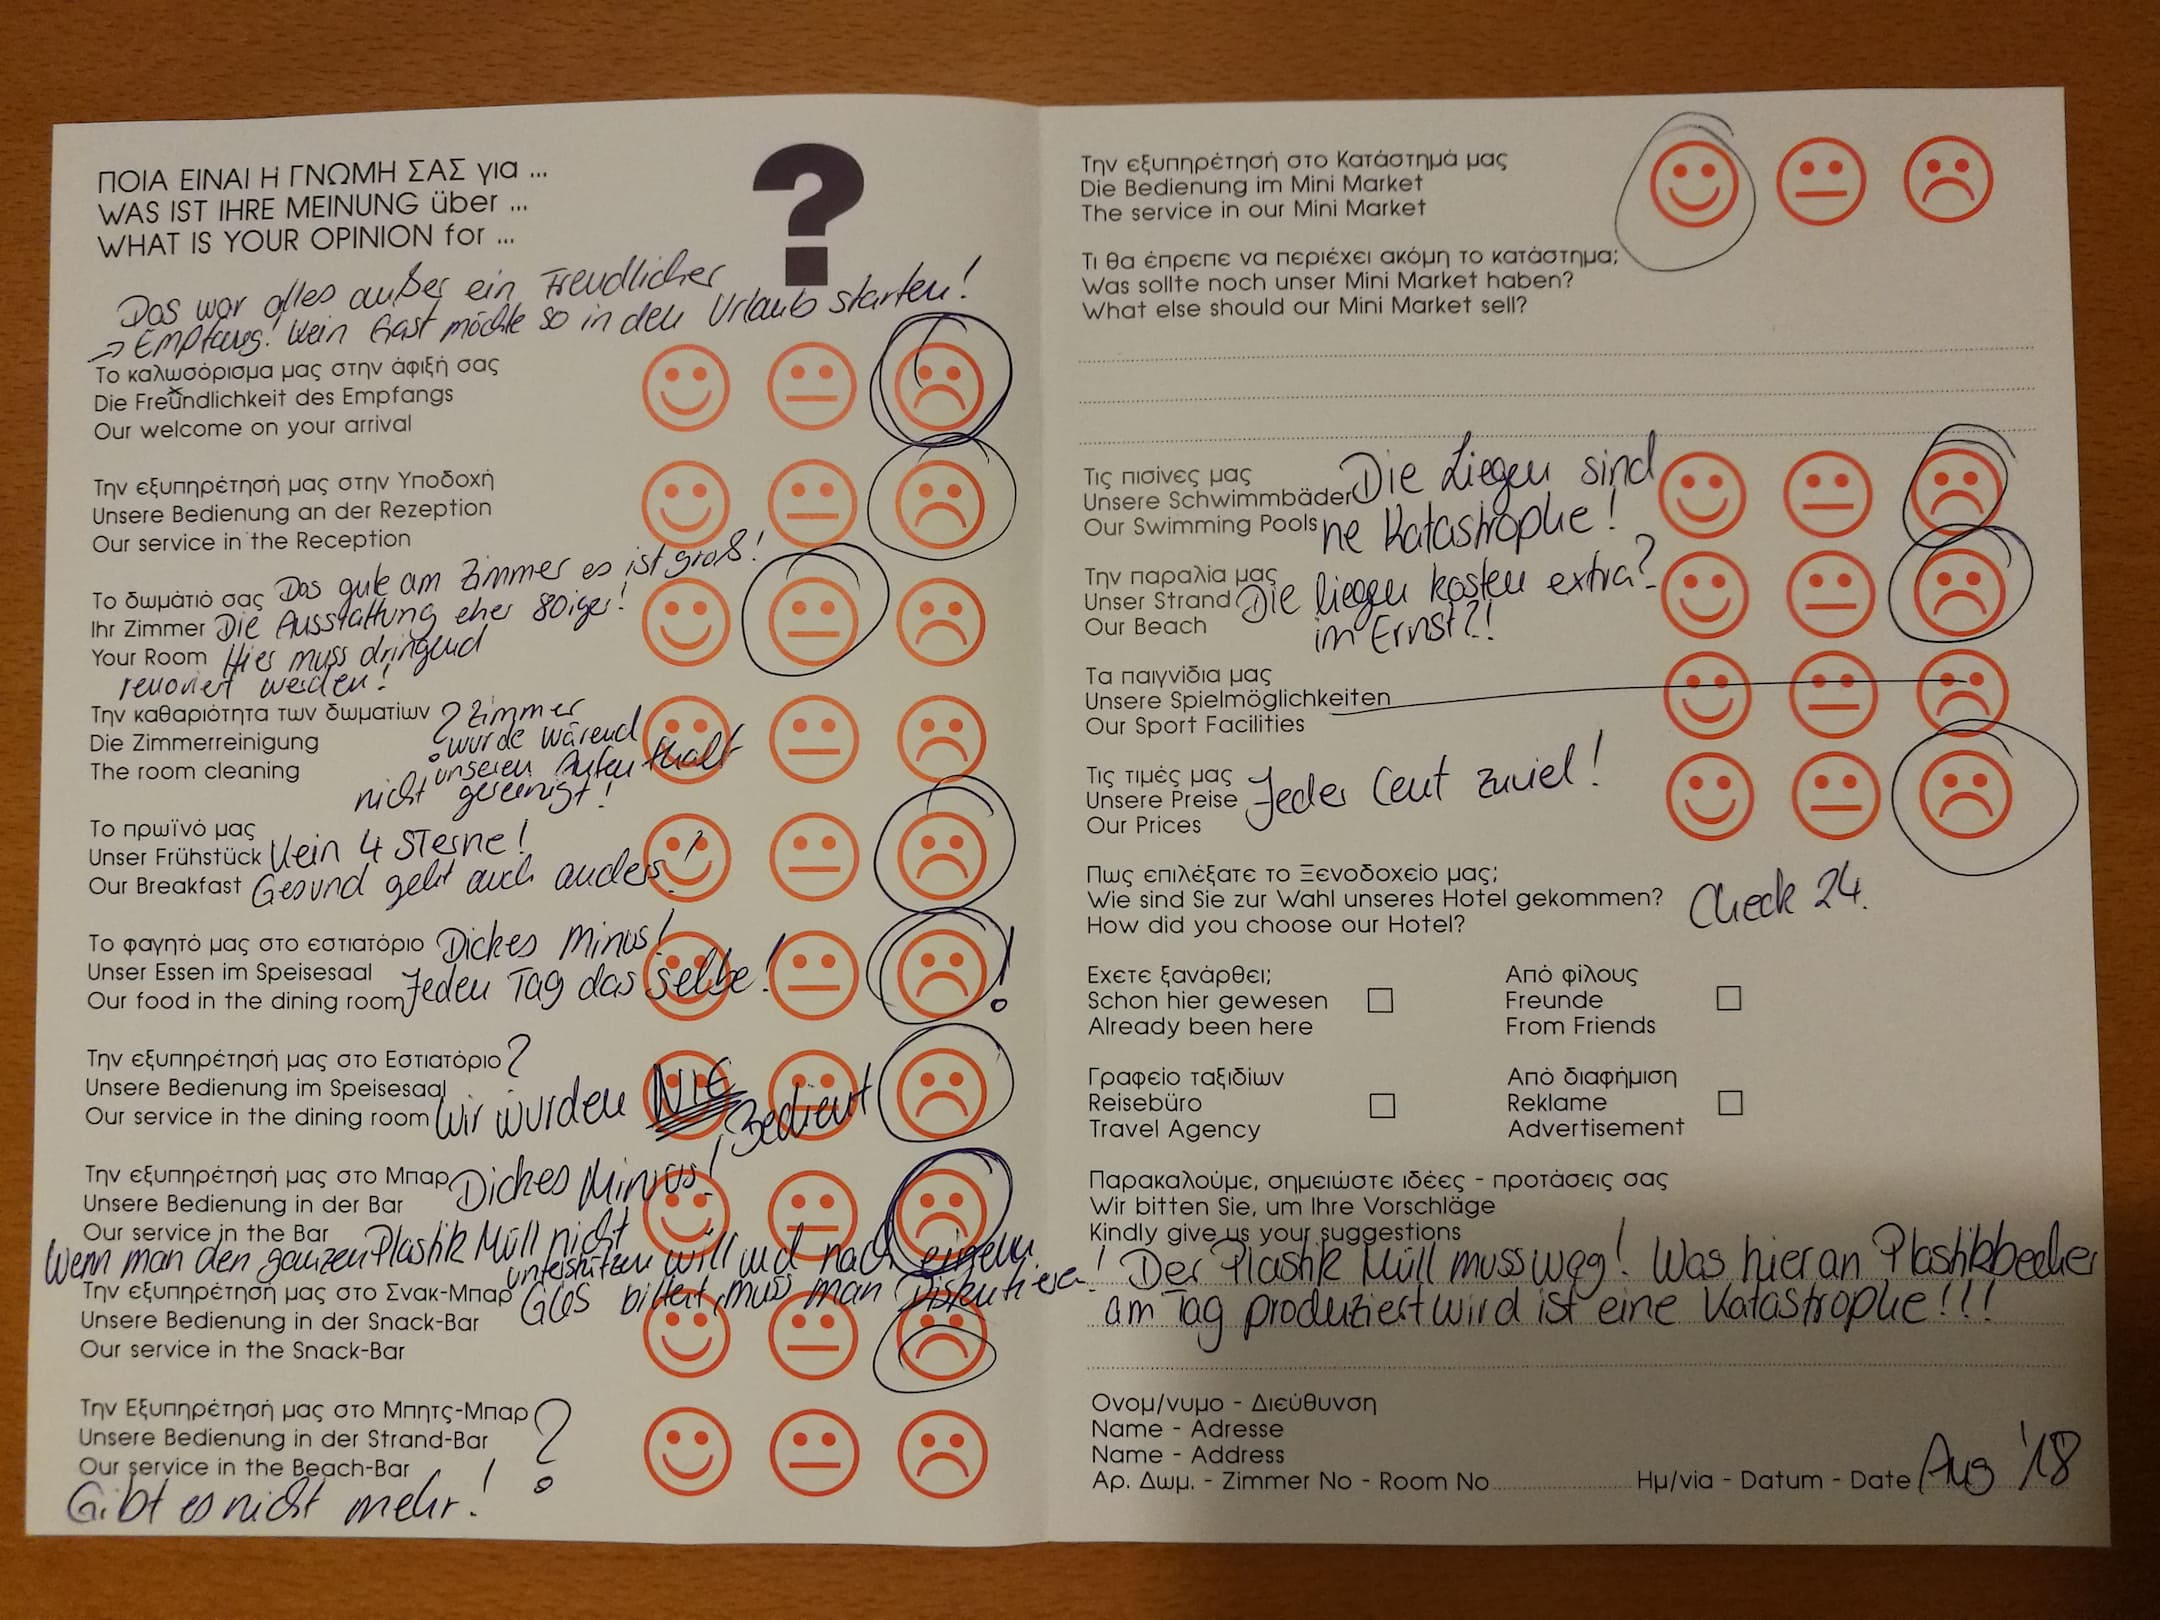 ΠΟΙΑ ΕΙΝΑΙ Η ΓΝΩΜΗ ΣΑΣ για ...
WAS IST IHRE MEINUNG über ...
WHAT IS YOUR OPINION for ...
?
Das war alles außer ein Freudlicher
→ Empfang! Kein Gast möchte so in den Urlaub starten!
Το καλωσόρισμα μας στην άφιξή σας
Die Freundlichkeit des Empfangs
Our welcome on your arrival
Την εξυπηρέτησή μας στην Υποδοχή
Unsere Bedienung an der Rezeption
Our service in the Reception
Το δωμάτιό σας Das gute am Zimmer es ist groß!
Ihr Zimmer Die Ausstattung eher 80iger!
Your Room Hier muss dringend
renoviert werden!
Την καθαριότητα των δωματίων ? Zimmer
Die Zimmerreinigung wurde wärend
The room cleaning unseren Aufenthalt
nicht gereinigt!
Το πρωϊνό μας
Unser Frühstück Kein 4 Sterne!
Our Breakfast Gesund geht auch anders!
Το φαγητό μας στο εστιατόριο Dickes Minus!
Unser Essen im Speisesaal
Our food in the dining room Jeden Tag das selbe! !
Την εξυπηρέτησή μας στο Εστιατόριο ?
Unsere Bedienung im Speisesaal
Our service in the dining room Wir wurden NIE Bedient!
Την εξυπηρέτησή μας στο Μπαρ Dickes Minus!
Unsere Bedienung in der Bar
Our service in the Bar
Wenn man den ganzen Plastik Müll nicht
unterstützen will und nach eigenen
Την εξυπηρέτησή μας στο Σνακ-Μπαρ Glas bittet, muss man Diskutieren!
Unsere Bedienung in der Snack-Bar
Our service in the Snack-Bar
Την Εξυπηρέτησή μας στο Μπητς-Μπαρ ?
Unsere Bedienung in der Strand-Bar
Our service in the Beach-Bar
Gibt es nicht mehr!
Την εξυπηρέτησή στο Κατάστημά μας
Die Bedienung im Mini Market
The service in our Mini Market
Τι θα έπρεπε να περιέχει ακόμη το κατάστημα;
Was sollte noch unser Mini Market haben?
What else should our Mini Market sell?
Τις πισίνες μας Die Liegen sind
Unsere Schwimmbäder
Our Swimming Pools ne Katastrophe!
Την παραλία μας
Unser Strand Die liegen kosten extra?
Our Beach im Ernst?!
Τα παιγνίδια μας
Unsere Spielmöglichkeiten
Our Sport Facilities
Τις τιμές μας
Unsere Preise Jeder Cent zuviel!
Our Prices
Πως επιλέξατε το Ξενοδοχείο μας;
Wie sind Sie zur Wahl unseres Hotel gekommen? Check 24.
How did you choose our Hotel?
Εχετε ξανάρθει; Από φίλους
Schon hier gewesen Freunde
Already been here From Friends
Γραφείο ταξιδίων Από διαφήμιση
Reisebüro Reklame
Travel Agency Advertisement
Παρακαλούμε, σημειώστε ιδέες - προτάσεις σας
Wir bitten Sie, um Ihre Vorschläge
Kindly give us your suggestions
! Der Plastik Müll muss weg! Was hier an Plastikbecher
am Tag produziert wird ist eine Katastrophe!!!
Ονομ/νυμο - Διεύθυνση
Name - Adresse
Name - Address
Αρ. Δωμ. - Zimmer No - Room No Ημ/via - Datum - Date Aug '18